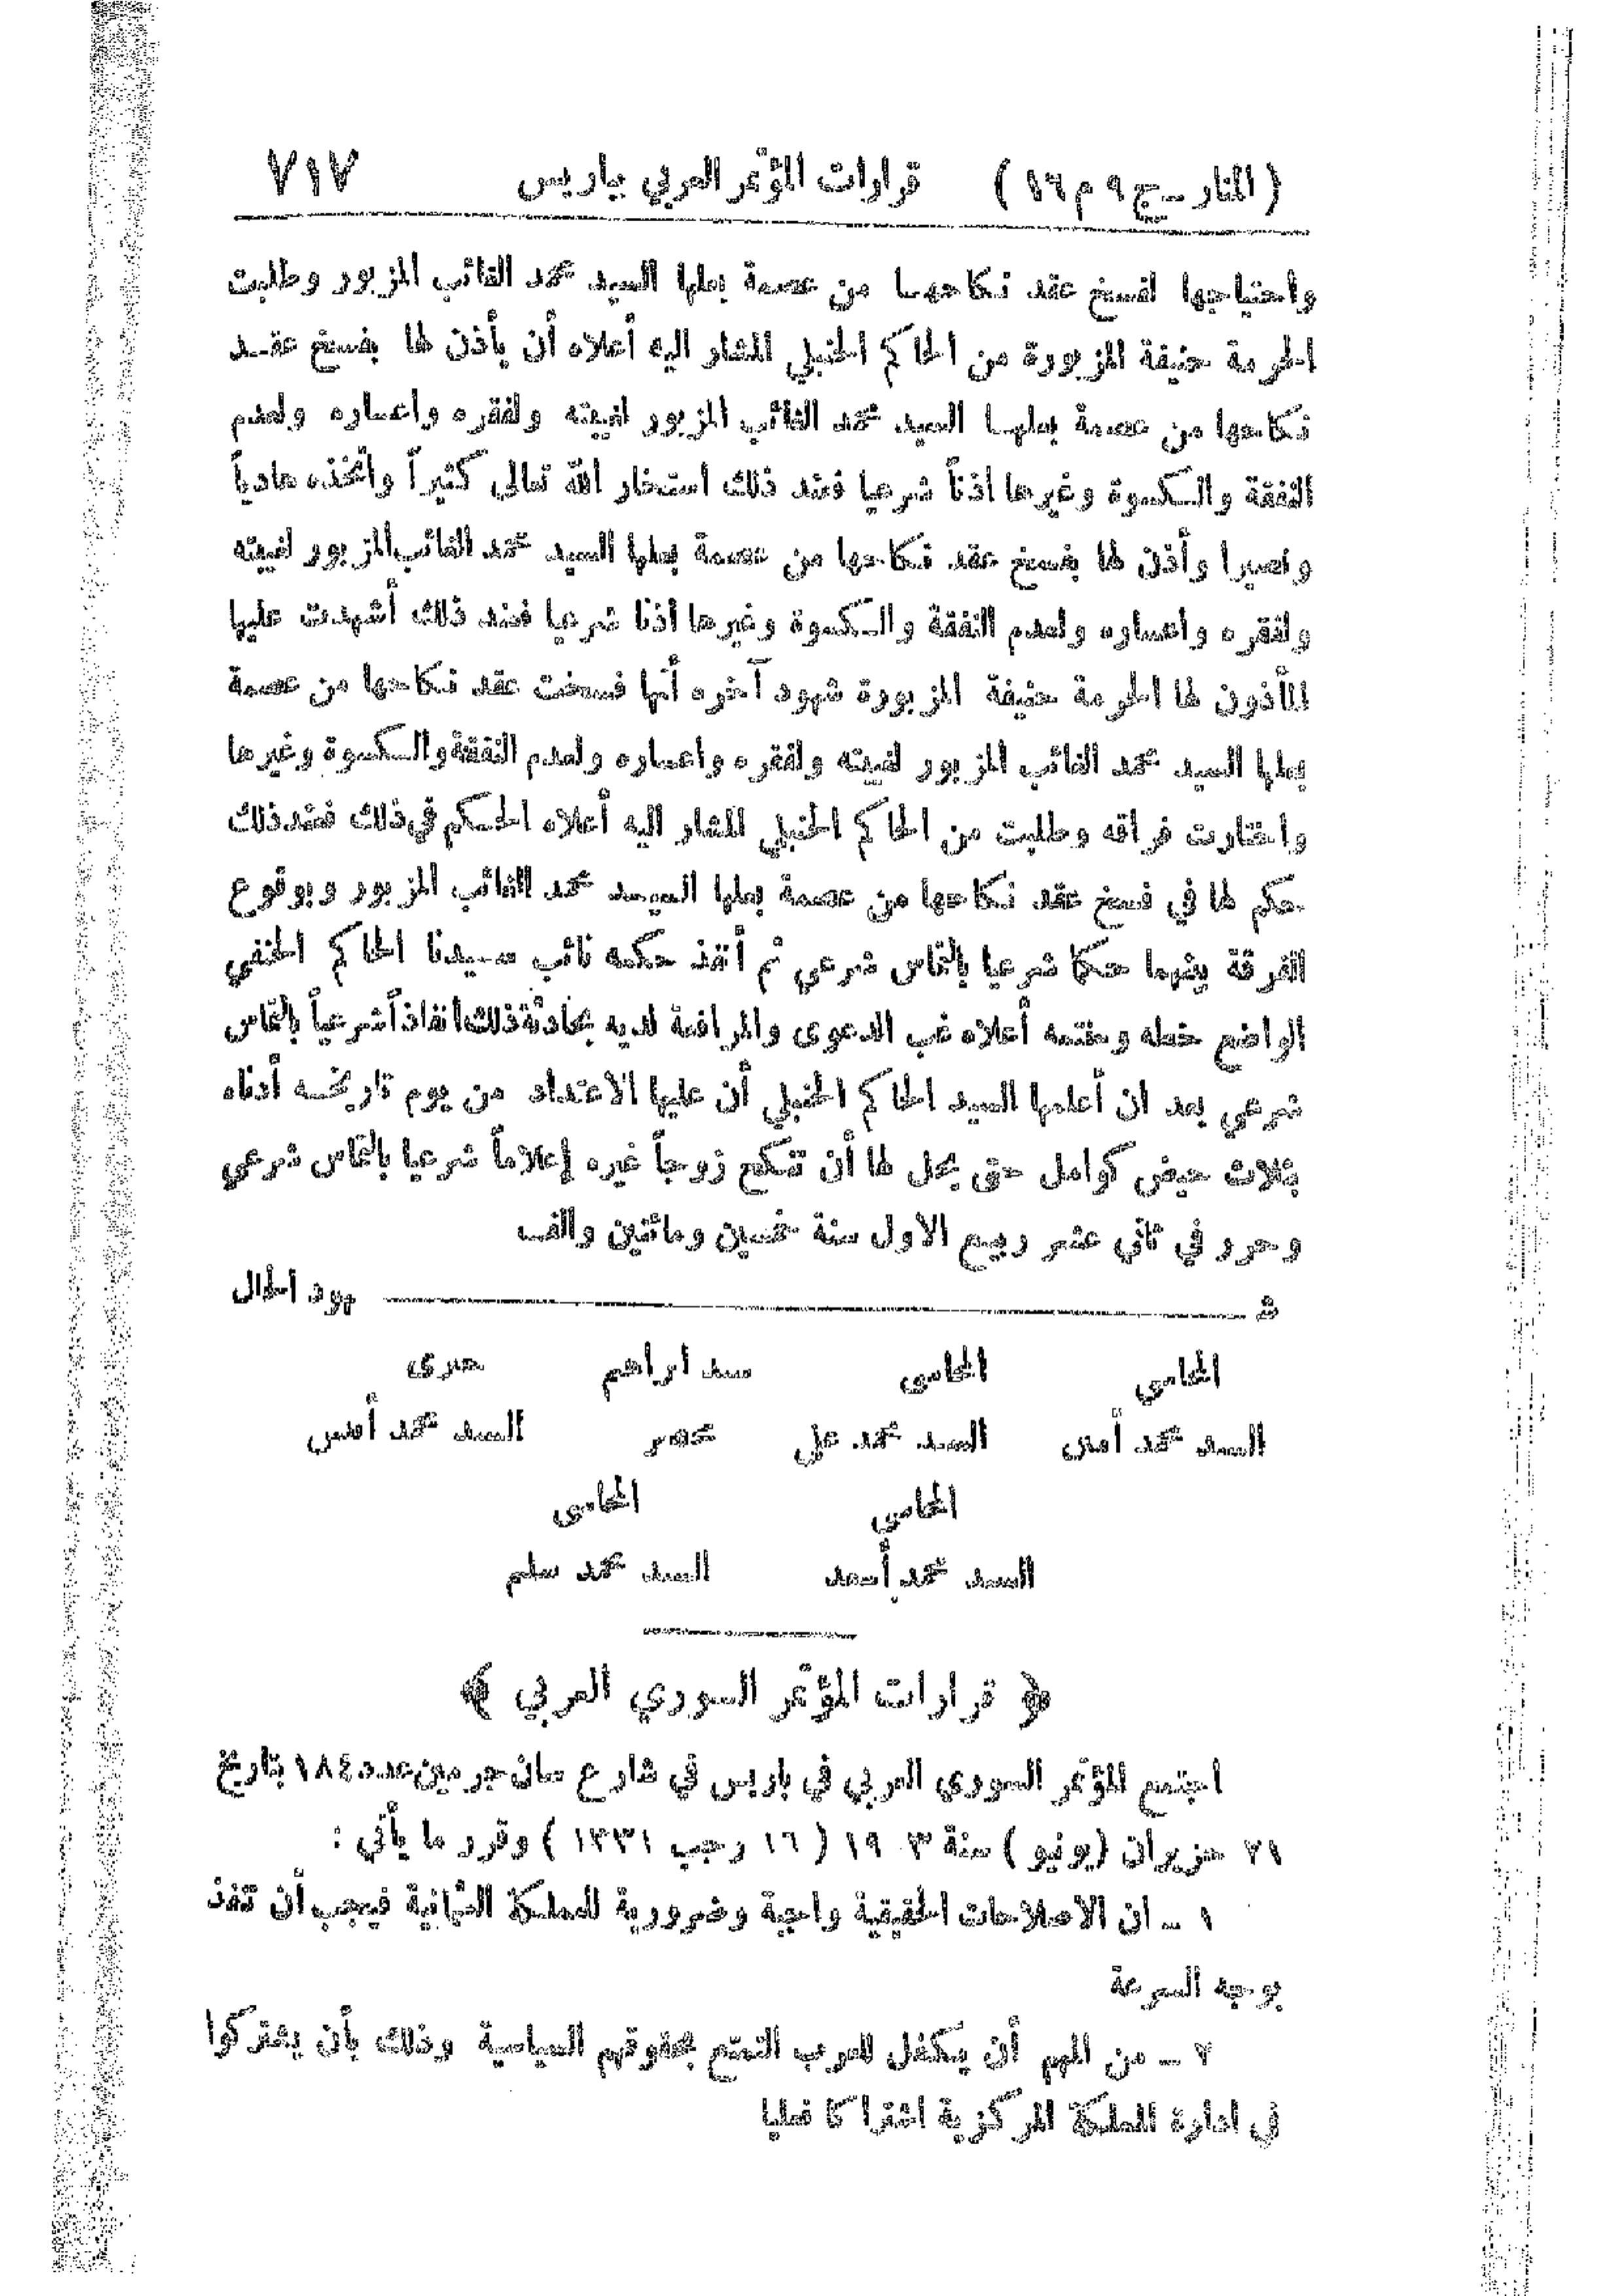 (المنار ـ ج ٩ م ١٦) قرارات المؤتمر العربي بباريس ٧١٧
واحتياجها لفسخ عقد نكاحها من عصمة بعلها السيد محمد الغائب المزبور وطلبت
الحرمة حنيفة المزبورة من الحاكم الحنبلي المشار اليه أعلاه أن يأذن لها بفسخ عقد
نكاحها من عصمة بعلها السيد محمد الغائب المزبور لغيبته ولفقره واعساره ولعدم
النفقة والكسوة وغيرها اذناً شرعيا فعند ذلك استخار الله تعالى كثيراً واتخذه هادياً
ونصيرا وأذن لها بفسخ عقد نكاحها من عصمة بعلها السيد محمد الغائب المزبور لغيبته
ولفقره واعساره ولعدم النفقة والكسوة وغيرها اذنا شرعيا فعند ذلك أشهدت عليها
المأذون لها الحرمة حنيفة المزبورة شهود آخره أنها فسخت عقد نكاحها من عصمة
بعلها السيد محمد الغائب المزبور لغيبته ولفقره واعساره ولعدم النفقة والكسوة وغيرها
واختارت فراقه وطلبت من الحاكم الحنبلي المشار اليه أعلاه الحكم في ذلك فعند ذلك
حكم لها في فسخ عقد نكاحها من عصمة بعلها السيد محمد الغائب المزبور وبوقوع
الفرقة بينهما حكما شرعيا بالتماس شرعي ثم أنفذ حكمه نائب سيدنا الحاكم الحنفي
الواضع خطه وختمه أعلاه غب الدعوى والمرافعة لديه بحادثة ذلك انفاذاً شرعياً بالتماس
شرعي بعد ان أعلمها السيد الحاكم الحنبلي أن عليها الاعتداد من يوم تاريخه أدناه
بثلاث حيض كوامل حتى يحل لها أن تنكح زوجاً غيره إعلاماً شرعيا بالتماس شرعي
وحرر في ثاني عشر ربيع الاول سنة خمسين ومائتين والف
شـ ـهود الحال
المحامي المحامى سيد ابراهيم صبرى
السيد محمد أمين السيد محمد علي محضر السيد محمد أمين
المحامي المحامى
السيد محمد أسعد السيد محمد سليم
﴿ قرارات المؤتمر السوري العربي ﴾
اجتمع المؤتمر السوري العربي في باريس في شارع سان جرمين عدد ١٨٤ بتاريخ
٢١ حزيران (يونيو) سنة ١٩٠٣ (١٦ رجب ١٣٣١) وقرر ما يأتي :
١ ـ ان الاصلاحات الحقيقية واجبة وضرورية للمملكة العثمانية فيجب أن تنفذ
بوجه السرعة
٢ ـ من المهم أن يكفل للعرب التمتع بحقوقهم السياسية وذلك بأن يشتركوا
في ادارة المملكة المركزية اشتراكا فعليا